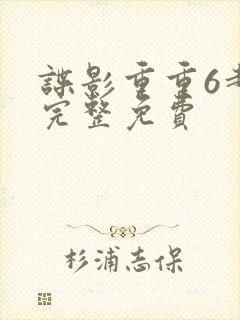 諜影重重6
完整免費
杉浦志保